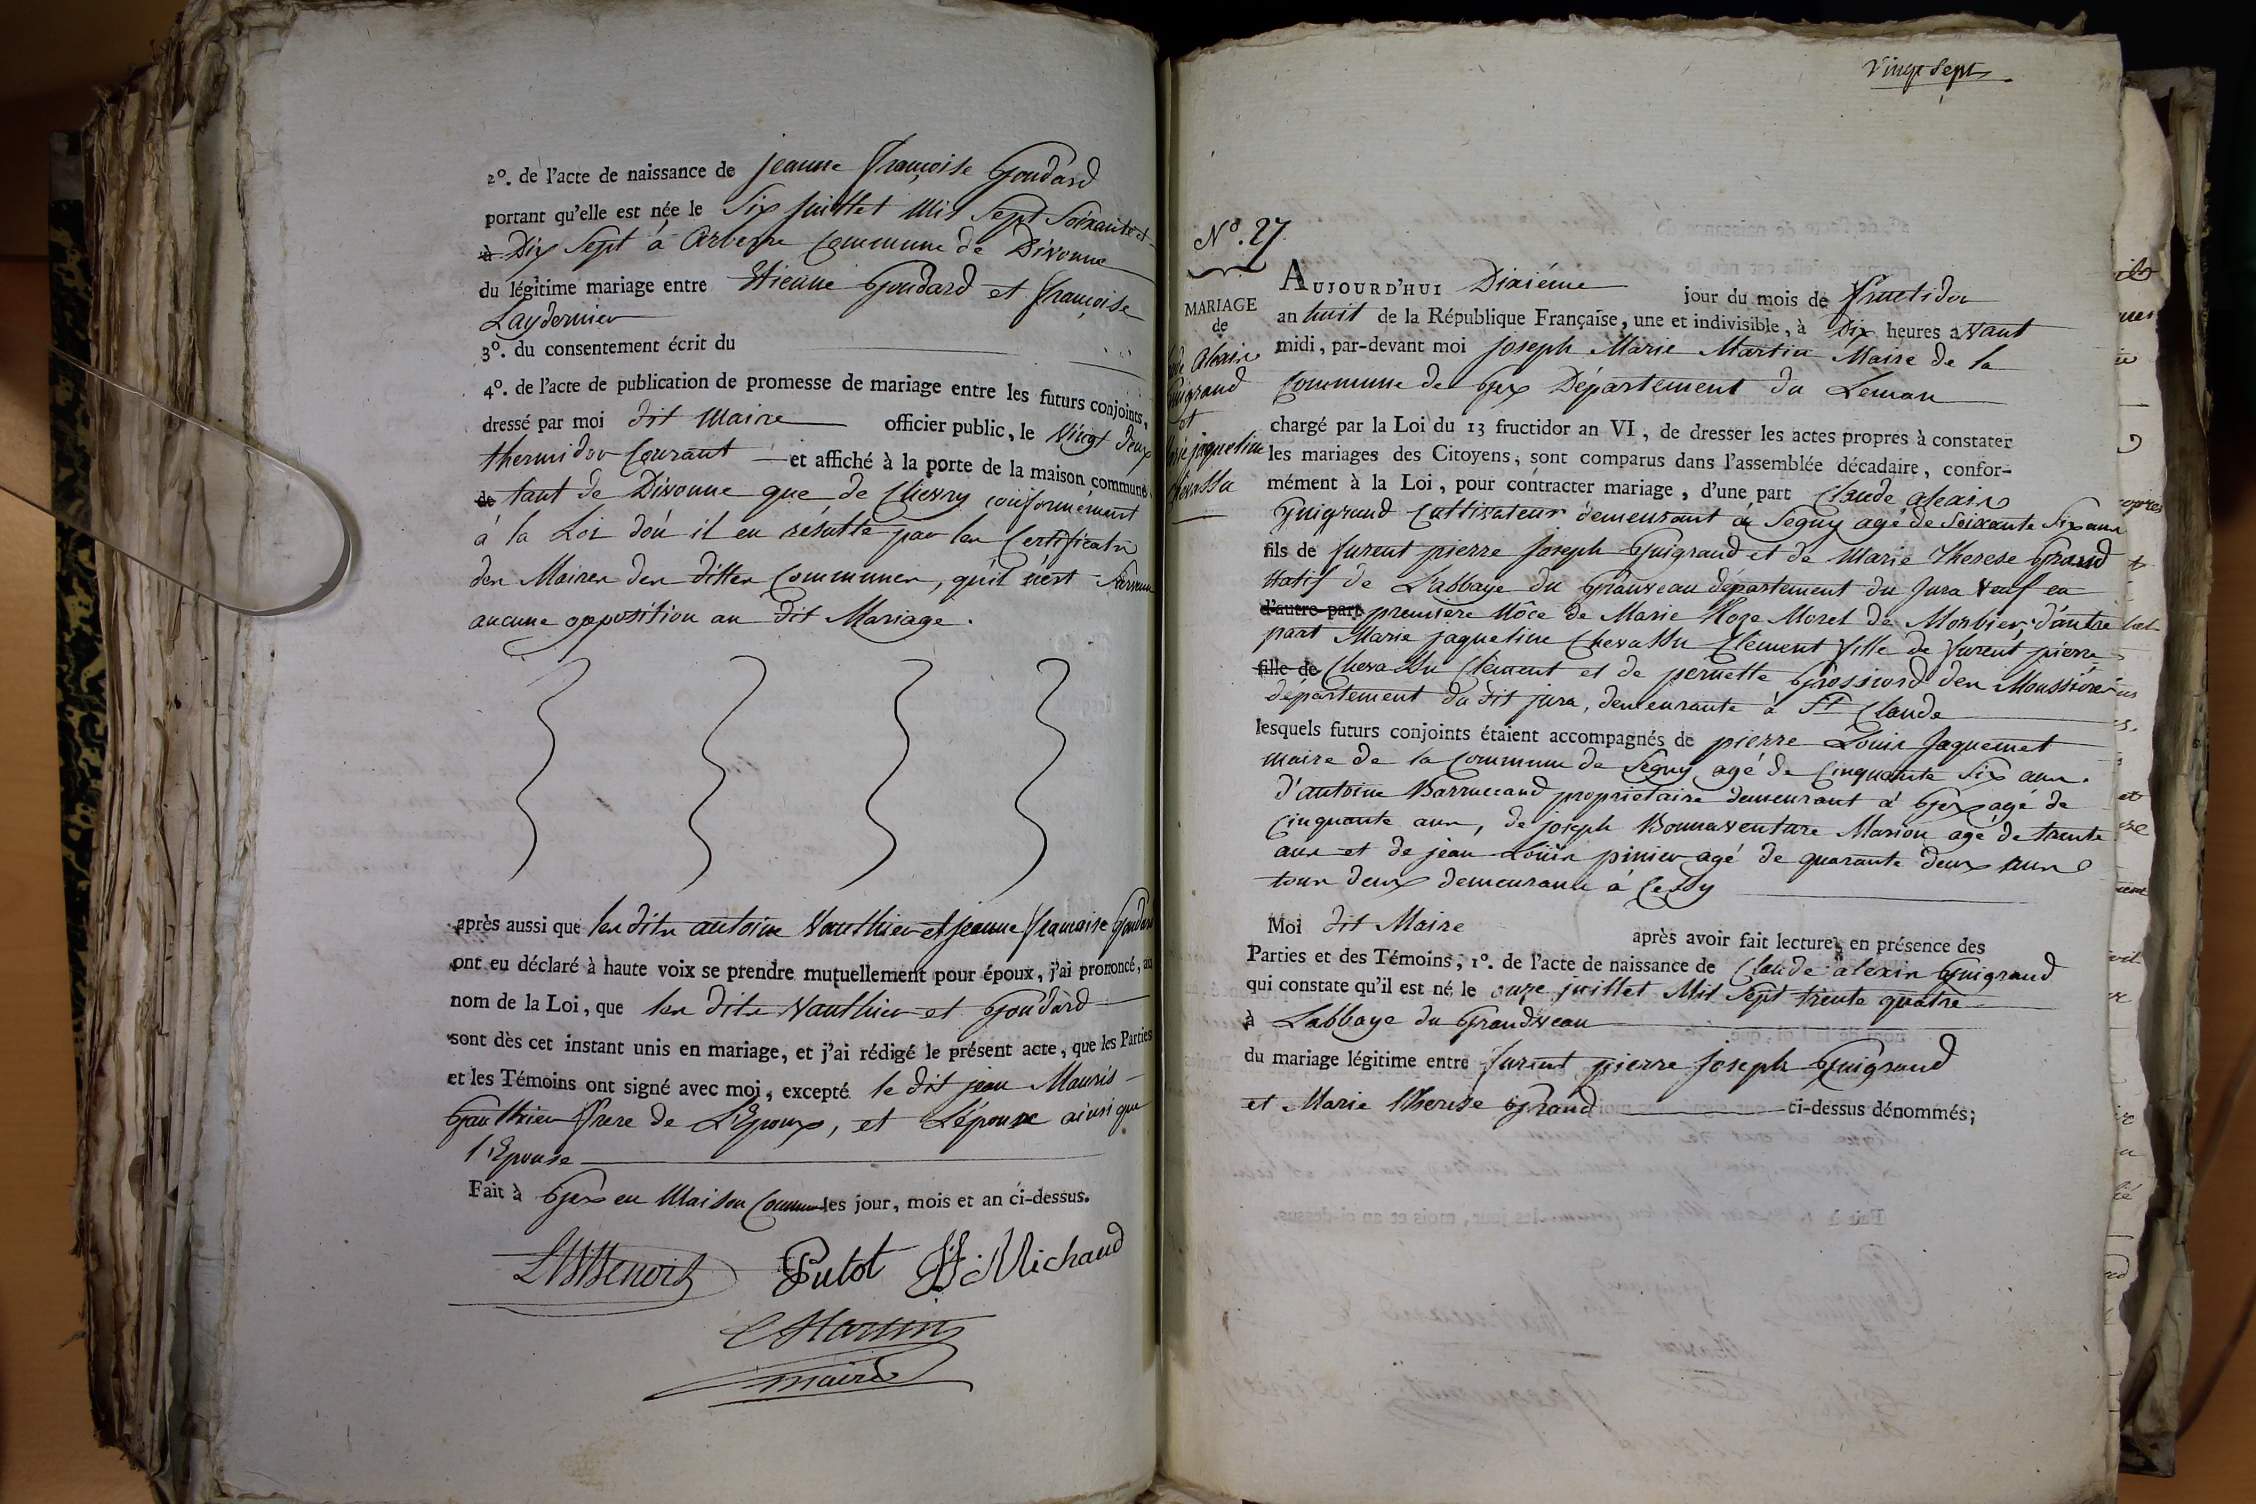 2°. de l'acte de naissance de jeanne françoise Goudard
portant qu'elle est née le Six juillet Mil Sept Soixante et
à Dix Sept à Arberre Commune de Divonne
du légitime mariage entre Etienne Goudard et françoise
Laydernier
3°. du consentement écrit du
4°. de l'acte de publication de promesse de mariage entre les futurs conjoints,
dressé par moi dit Maire officier public, le Vingt deux
thermidor Courant et affiché à la porte de la maison commune
de tant de Divonne que de Chevry conformément
à la Loi d'où il en résulte par les Certificats
des Maires des dittes Communes, qu'il n'est Survenu
aucune opposition au dit Mariage.
après aussi que les dits antoine Vauthier et jeanne françoise Goudard
ont eu déclaré à haute voix se prendre mutuellement pour époux, j'ai prononcé, au
nom de la Loi, que les dits Vauthier et Goudard
sont dès cet instant unis en mariage, et j'ai rédigé le présent acte, que les Parties
et les Témoins ont signé avec moi, excepté le dit jean Mauris
Gauthier frere de L'Epoux, et L'épouse ainsi que
l'Epouse
Fait à Gex en Maison Commune les jour, mois et an ci-dessus.
Benoit Putot Michaud
Martin
maire
Vingt Sept
N°. 27
MARIAGE
de
Claude Alexis
Guigrand
et
Marie jaqueline
Chevassu
AUJOURD'HUI Dixiéme jour du mois de fructidor
an huit de la République Française, une et indivisible, à Dix heures avant
midi, par-devant moi Joseph Marie Martin Maire de la
Commune de Gex Département du Leman
chargé par la Loi du 13 fructidor an VI, de dresser les actes propres à constater
les mariages des Citoyens, sont comparus dans l'assemblée décadaire, confor-
mément à la Loi, pour contracter mariage, d'une part Claude alexis
Guigrand Cultivateur demeurant à Segny agé de Soixante Six ans
fils de furent pierre Joseph Guigrand et de Marie Therese Grand
Natif de L'abbaye du Granveau département du Jura Veuf en
d'autre part première Nôce de Marie Roze Morel de Morbier, d'autre
part Marie jaqueline Chevassu Clément fille de furent pierre
fille de Chevassu Clément et de pernette Grossiord des Moussières
département du dit jura, demeurante à St Claude
lesquels futurs conjoints étaient accompagnés de pierre Louis Jaquemet
maire de la Commune de Segny agé de Cinquante Six ans.
d'antoine Barruccand proprietaire demeurant à Gex agé de
Cinquante ans, de joseph Bonnaventure Marion agé de trente
ans et de jean Loüis pinier agé de quarante deux ans
tous deux demeurans à Cessy
Moi dit Maire après avoir fait lecture, en présence des
Parties et des Témoins, 1°. de l'acte de naissance de Claude alexis Guigrand
qui constate qu'il est né le onze juillet Mil Sept trente quatre
à Labbaye du Grandveau
du mariage légitime entre furent pierre Joseph Guigrand
et Marie Therese Grand ci-dessus dénommés;